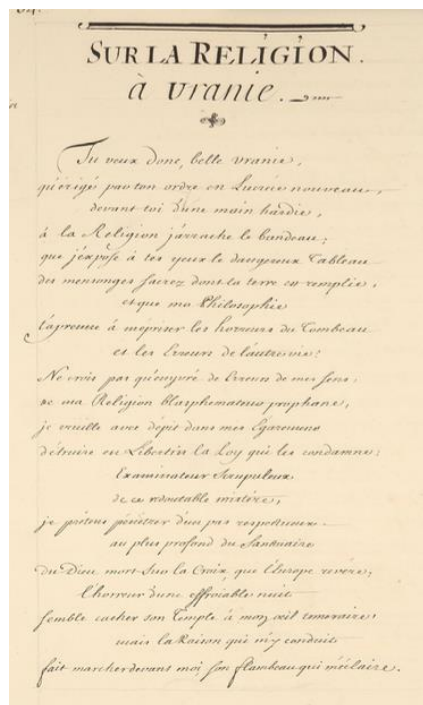 SUR LA RELIGION.
à Vranie.
Tu veux donc, belle Vranie,
qu'érigé par ton ordre en Lucrece nouveau,
devant toi d'une main hardie,
à la Religion j'arrache le bandeau;
que j'expose à tes yeux le dangereux Tableau
des mensonges sacrez dont la terre est remplie,
et que ma Philosophie
t'aprenne à mépriser les horreurs du Tombeau
et les Erreurs de l'autre vie?
Ne crois pas qu'enyvré de Erreurs de mes sens,
de ma Religion blasphemateur prophane,
je veuille avec dépit dans mes Egaremens
détruire en Libertin la Loy qui les condamne;
Examinateur Scrupuleux
de ce redoutable mistére,
je prétens pénétrer d'un pas respectueux
au plus profond du Sanctuaire
du Dieu mort sur la Croix, que l'Europe revére;
l'horreur d'une effroiable nuit
semble cacher son Temple à mon œil temeraire;
mais la Raison qui m'y conduit
fait marcher devant moi son flambeau qui m'éclaire.